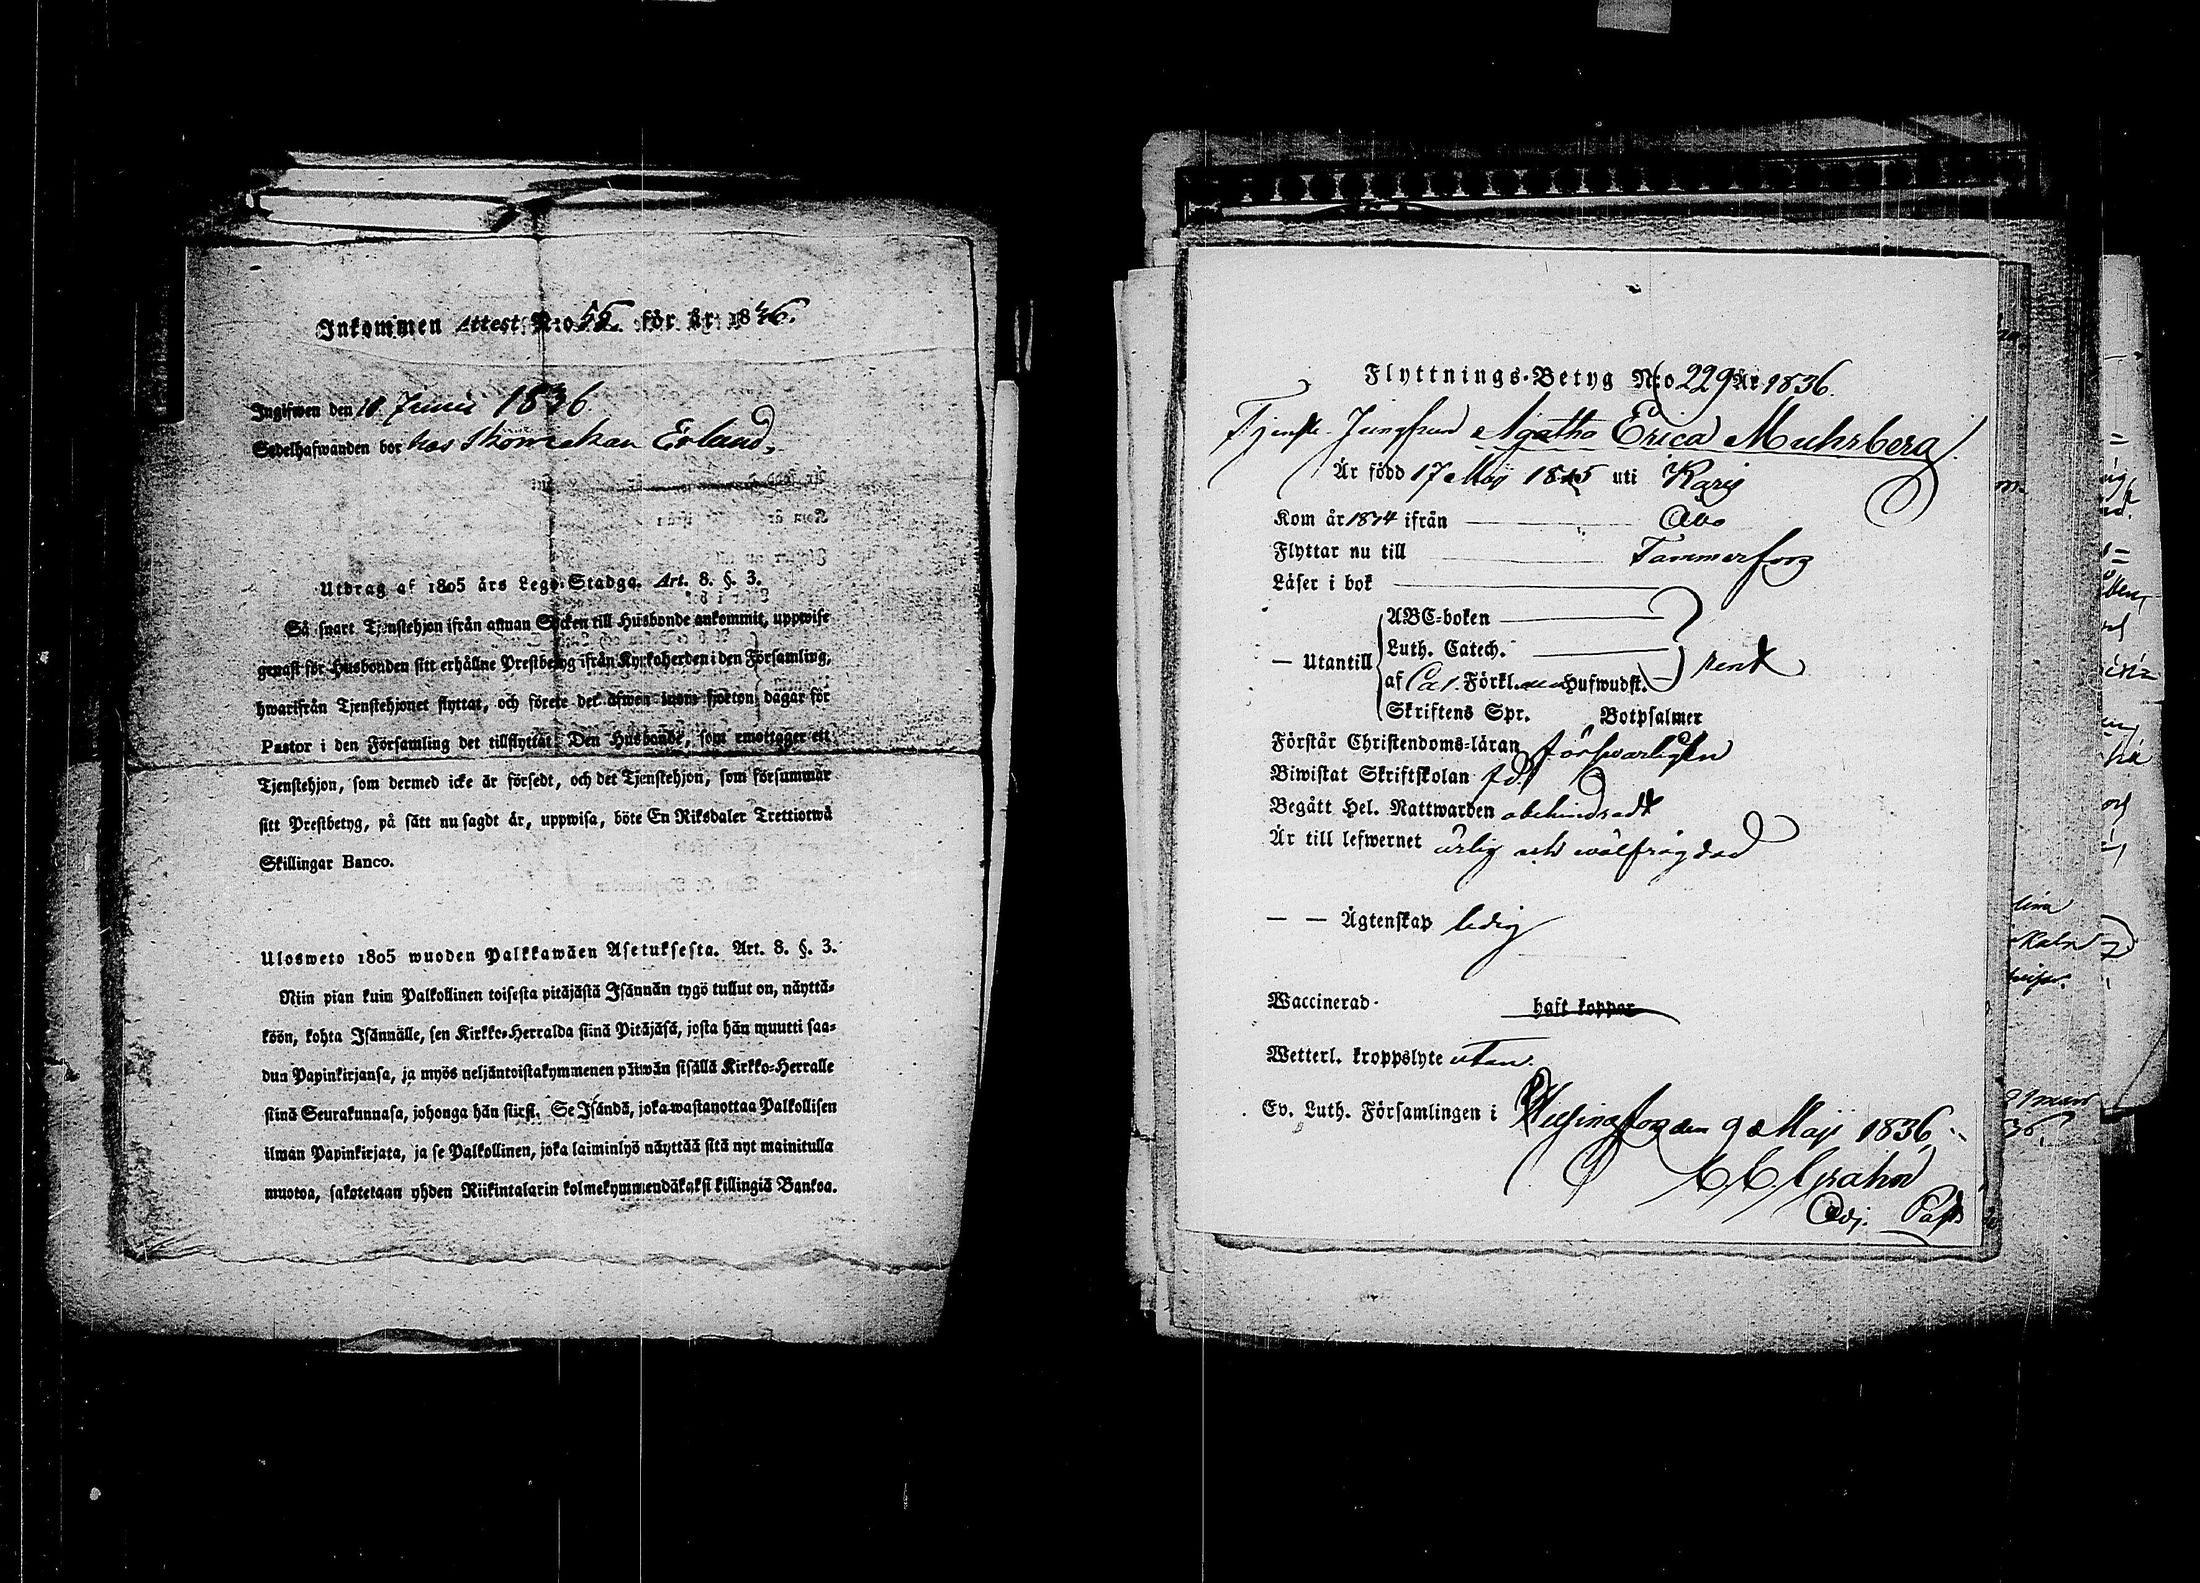 Inkommen Attest N:o 55. för år 1836.
Ingifwen den 18 Junii 1836.
Sedelhafwanden bor hos Skomakan Erland,
Utdrag af 1805 års Lego-Stadga. Art. 8. §. 3.
Så snart Tjenstehjon ifrån annan Socken till Husbonde ankommit, uppwise
genast för Husbonden sitt erhållne Prestbetyg ifrån Kyrkoherden i den Församling,
hwarifrån Tjenstehjonet flyttat, och förete det äfwen inom fjorton dagar för
Pastor i den Församling det tillflyttat. Den Husbonde, som emottager ett
Tjenstehjon, som dermed icke är försedt, och det Tjenstehjon, som försummar
sitt Prestbetyg, på sätt nu sagdt är, uppwisa, böte En Riksdaler Trettiotwå
Skillingar Banco.
Ulosweto 1805 wuoden Palkkawäen Asetuksesta. Art. 8. §. 3.
Niin pian kuin Palkollinen toisesta pitäjästä Isännän tygö tullut on, näyttä-
köön, kohta Isännälle, sen Kirkko-Herralda siinä Pitäjäsä, josta hän muutti saa-
dun Papinkirjansa, ja myös neljäntoistakymmenen päiwän sisällä Kirkko-Herralle
siinä Seurakunnasa, johonga hän siirsi. Se Isändä, joka wastanottaa Palkollisen
ilman Papinkirjata, ja se Palkollinen, joka laiminlyö näyttää sitä nyt mainitulla
muotoa, sakotetaan yhden Riikintalarin kolmekymmendäkaksi killingiä Bankoa.
Flyttnings-Betyg N:o 229 År 1836.
Tjenste Jungfrun Agatha Erica Muhrberg
Är född 17 Maji 1815 uti Karis
Kom år 1834 ifrån Åbo
Flyttar nu till Tammerfors
Läser i bok
ABC-boken
Luth. Catech.
— Utantill
af Förkl. Hufwudst. rent
Skriftens Spr. Botpsalmer
Förstår Christendoms-läran försvarligen
Biwistat Skriftskolan
Begått Hel. Nattwarden obehindradt
Är till lefwernet ärlig och wälfrägdad
— — Ägtenskap ledig
Waccinerad. haft koppor
Wetterl. kroppslyte utan.
Ev. Luth. Församlingen i Helsingfors den 9 Maji 1836.
Adj. Past